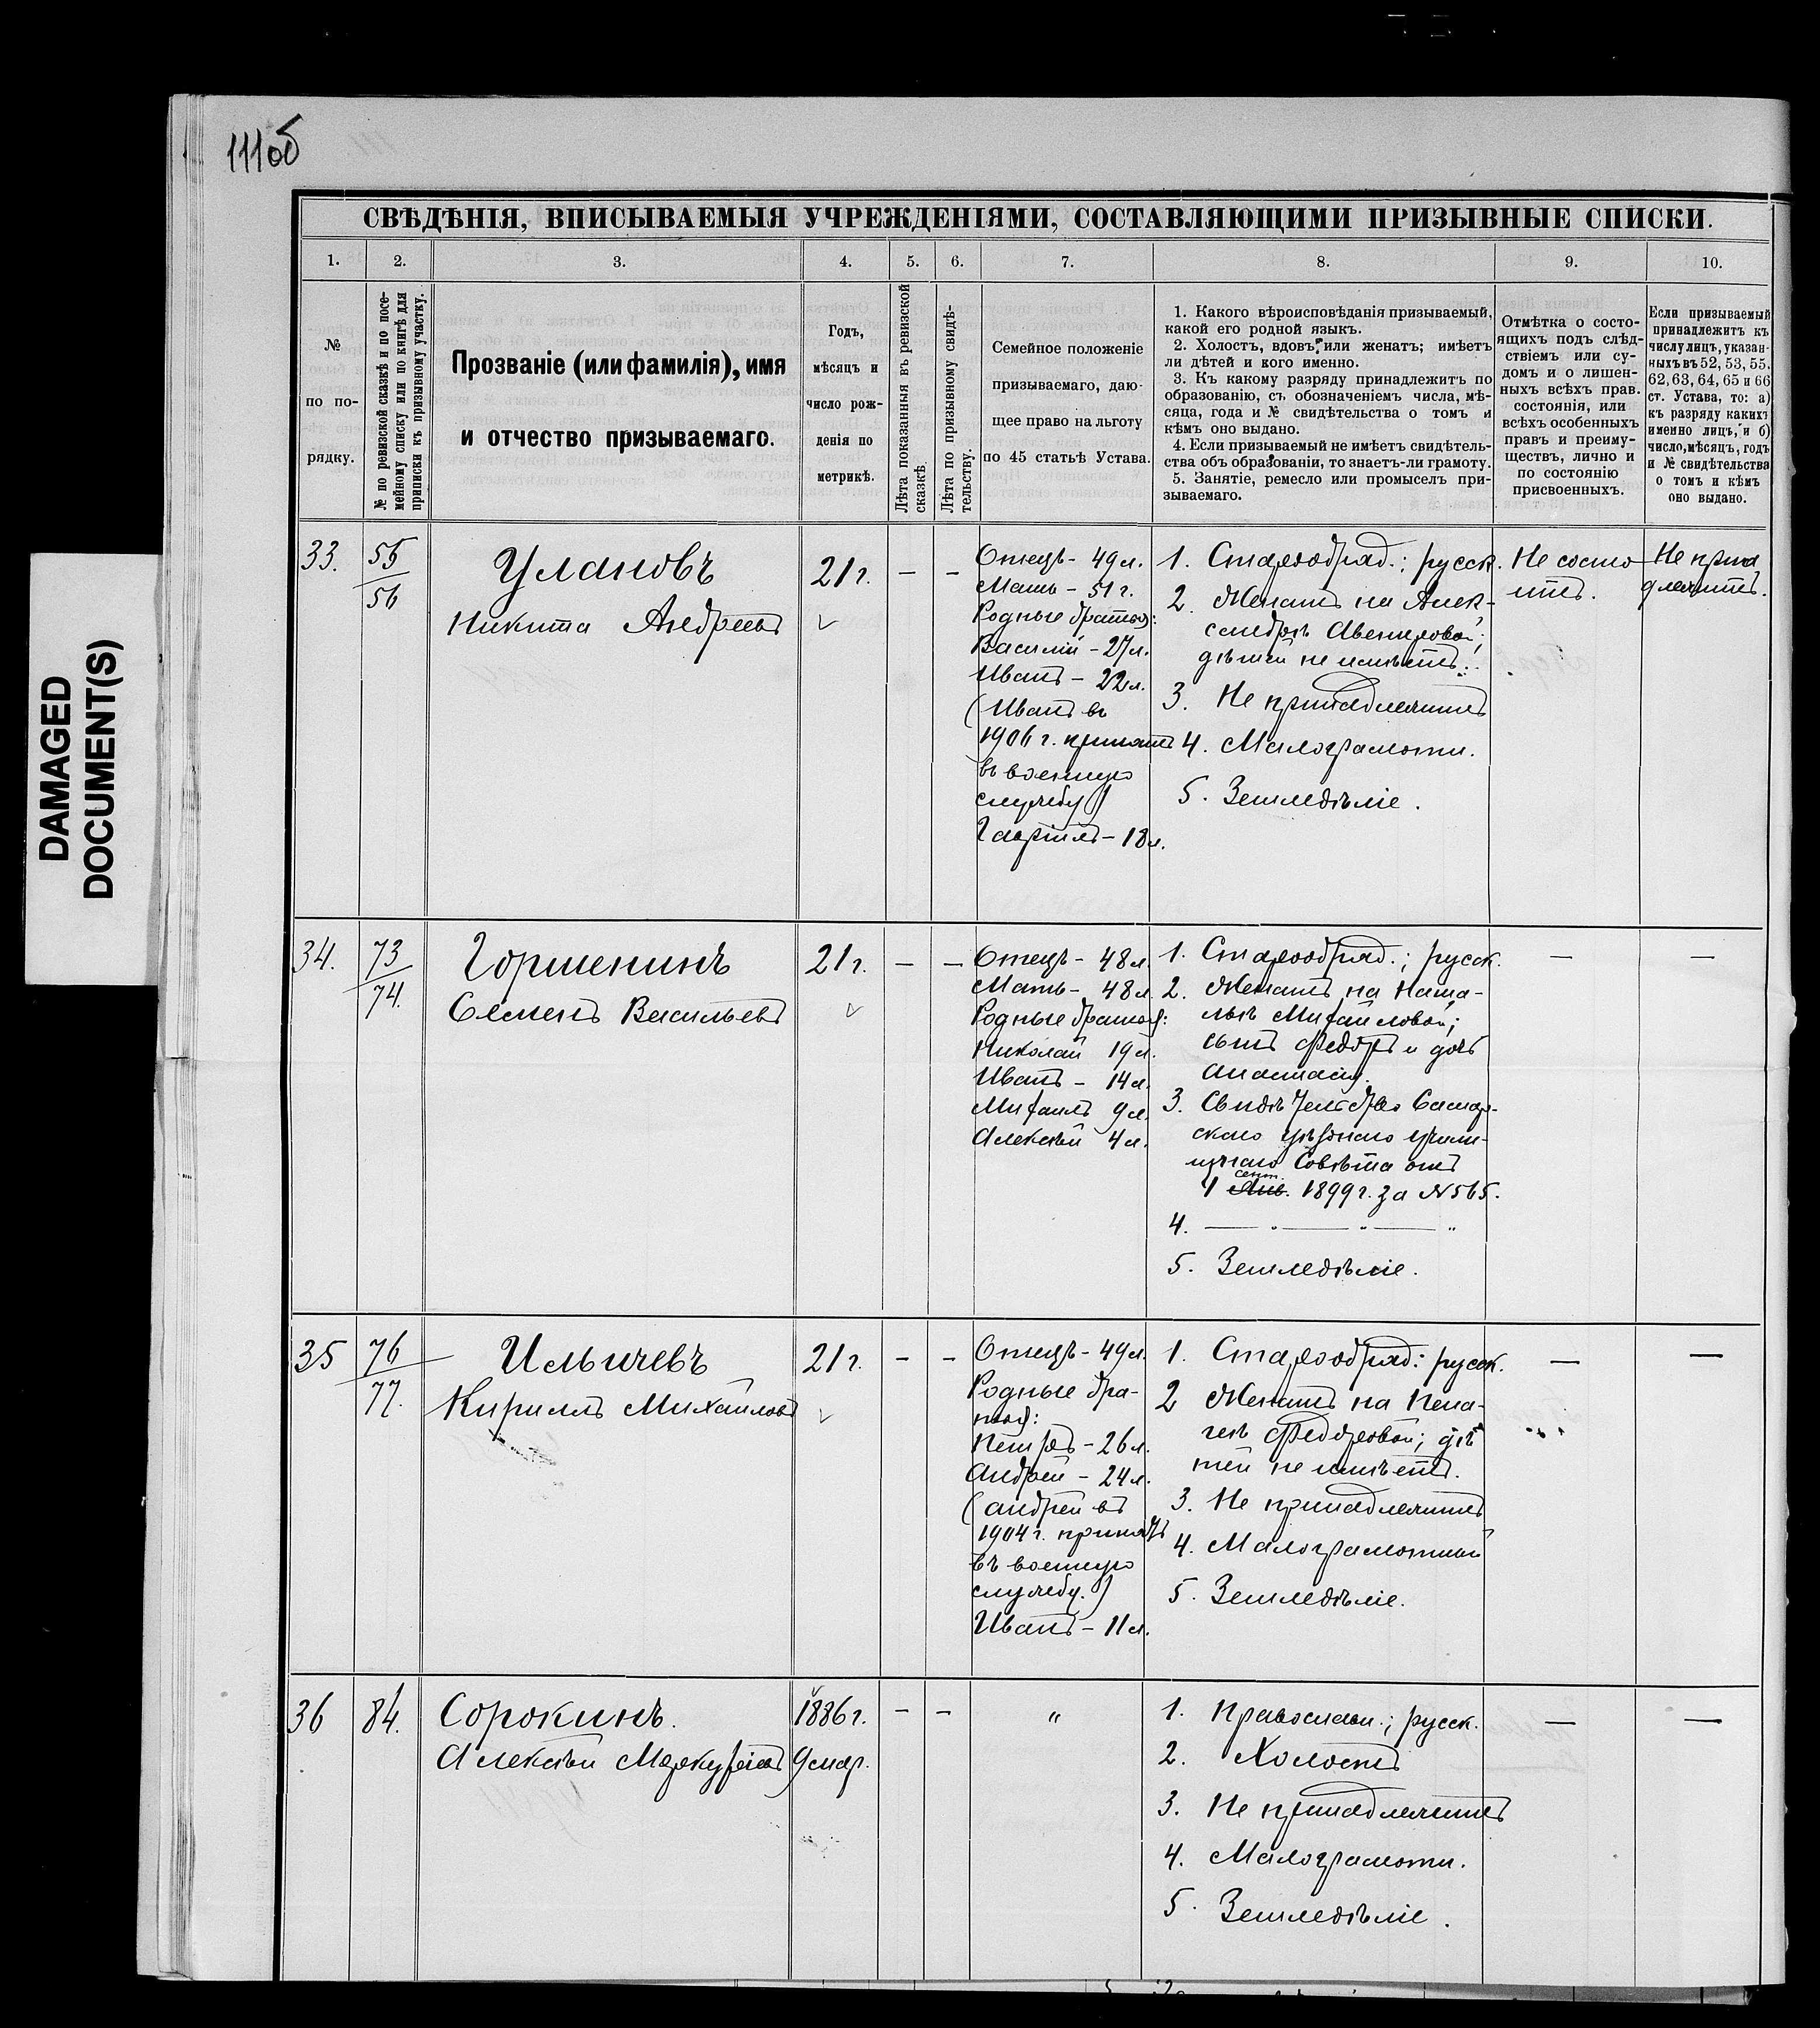 111об
DAMAGED
DOCUMENT(S)
СВѢДѢНІЯ, ВПИСЫВАЕМЫЯ УЧРЕЖДЕНІЯМИ, СОСТАВЛЯЮЩИМИ ПРИЗЫВНЫЕ СПИСКИ.
1. 2. 3. 4. 5. 6. 7. 8. 9. 10.
№
по по-
рядку.
№ по ревизской сказкѣ и по посе-
мейному списку или по книгѣ для
приписки къ призывному участку.
Прозваніе (или фамилія), имя
и отчество призываемаго.
Годъ,
мѣсяцъ и
число рож-
денія по
метрикѣ.
Лѣта показанныя въ ревизской
сказкѣ.
Лѣта по призывному свидѣ-
тельству.
Семейное положеніе
призываемаго, даю-
щее право на льготу
по 45 статьѣ Устава.
1. Какого вѣроисповѣданія призываемый,
какой его родной языкъ.
2. Холостъ, вдовъ, или женатъ; имѣетъ
ли дѣтей и кого именно.
3. Къ какому разряду принадлежитъ по
образованію, съ обозначеніемъ числа, мѣ-
сяца, года и № свидѣтельства о томъ и
кѣмъ оно выдано.
4. Если призываемый не имѣетъ свидѣтель-
ства объ образованіи, то знаетъ-ли грамоту.
5. Занятіе, ремесло или промыселъ при-
зываемаго.
Отмѣтка о состо-
ящихъ подъ слѣд-
ствіемъ или су-
домъ и о лишен-
ныхъ всѣхъ прав.
состоянія, или
всѣхъ особенныхъ
правъ и преиму-
ществъ, лично и
по состоянію
присвоенныхъ.
Если призываемый
принадлежитъ къ
числу лицъ, указан-
ныхъ въ 52, 53, 55.
62, 63, 64, 65 и 66
ст. Устава, то: а)
къ разряду какихъ
именно лицъ, и б)
число, мѣсяцъ, годъ
и № свидѣтельства
о томъ и кѣмъ
оно выдано.
33.
55
56
Улановъ
Никита Андреевъ
21 г.
– –
Отецъ - 49 л.
Мать - 51 г.
Родные братья:
Василій - 27 л.
Иванъ - 22 л.
(Иванъ въ
1906 г. принятъ
въ военную
службу)
Гавріилъ - 18 л.
1. Старообряд.; русск.
2. Женатъ на Алек-
сандрѣ Авенировой;
дѣтей не имѣетъ.
3. Не принадлежитъ
4. Малограмотн.
5. Земледѣліе.
Не состо-
итъ.
Не прина
длежитъ.
34.
73
74.
Горшенинъ
Семенъ Васильевъ
21 г.
– –
Отецъ - 48 л.
Мать - 48 л.
Родные братья:
Николай 19 л.
Иванъ - 14 л.
Михаилъ 9 л.
Алексѣй 4 л.
1. Старообряд.; русск.
2. Женатъ на Ната-
льѣ Михайловой;
сынъ Федоръ и дочь
Анастасія.
3. Свидѣтельство Самар-
скаго уѣзднаго учили-
щнаго Совѣта отъ
сент.
1 Янв. 1899 г. за N 565.
4. — " — " — "
5. Земледѣліе.
— —
35
76
77.
Ильичевъ
Кириллъ Михайловъ
21 г.
– –
Отецъ - 49 л.
Родные бра-
тья:
Петръ - 26 л.
Андрей - 24 л.
(Андрей въ
1904 г. принятъ
въ военную
службу.)
Иванъ - 11 л.
1. Старообряд: русск.
2 Женатъ на Пела-
геѣ Федоровой; дѣ
тей не имѣетъ.
3. Не принадлежитъ
4. Малограмотный
5. Земледѣліе.
— —
36
84.
Сорокинъ.
Алексѣй Меркурьевъ
1886 г.
9 мар.
– –
"
1. Православн.; русск.
2. Холостъ
3. Не принадлежитъ
4. Малограмотн.
5. Земледѣліе.
— —